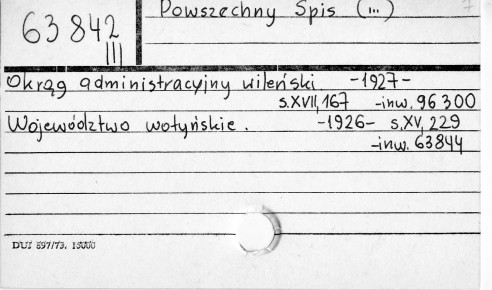 63 842
III
Powszechny Spis (...) 7
Okrąg administracyjny wileński -1927-
s.XVII, 167 -inw. 96 300
Województwo wołyńskie. -1926- s.XV, 229
-inw. 63844
DUJ 897/73. 15000